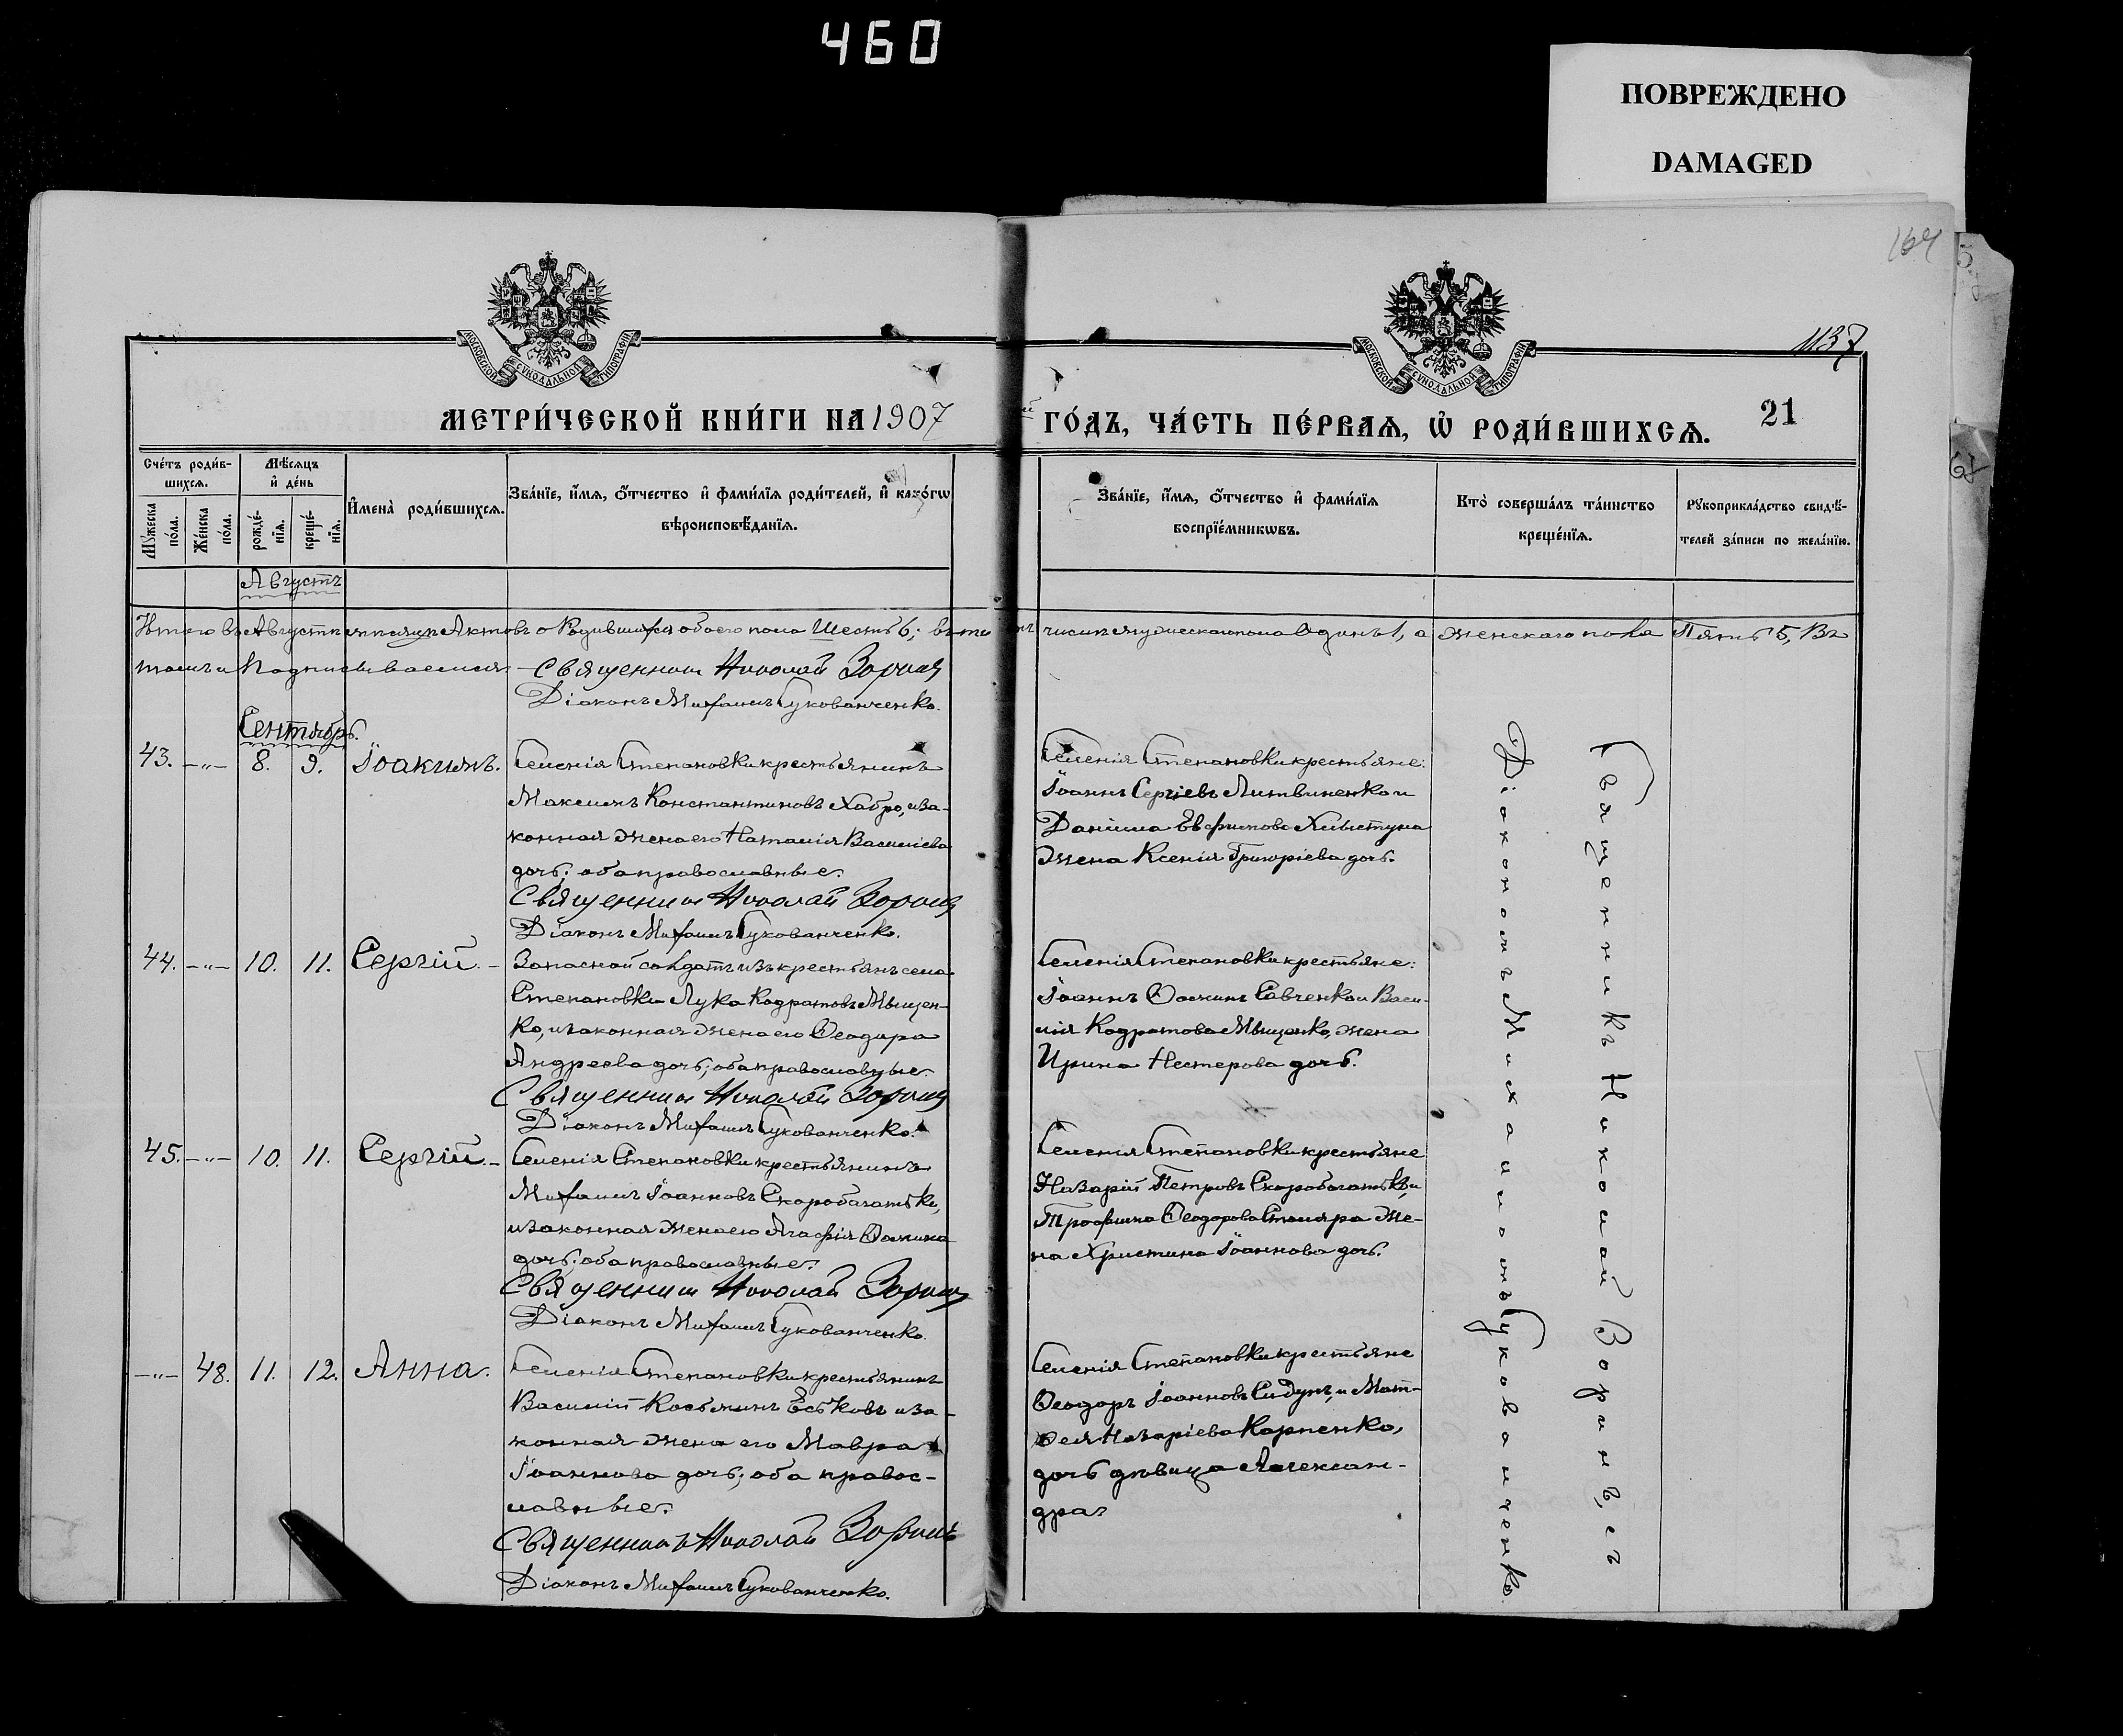 460
ПОВРЕЖДЕНО
DAMAGED
164
1137
МОСКОВСКОЙ СѴНОДАЛЬНОЙ ТИПОГРАФІИ
МОСКОВСКОЙ СѴНОДАЛЬНОЙ ТИПОГРАФІИ
МЕТРИ́ЧЕСКОЙ КНИ́ГИ НА 1907 ГО́ДЪ, ЧА́СТЬ ПЕ́РВАѦ, Ѡ҆ РОДИ́ВШИХСѦ.
21
Сче́тъ роди́вшихсѧ.
Му́жеска по́ла.
Же́нска по́ла.
Мѣ́сѧцъ и҆ де́нь
рожде́нїѧ.
креще́нїѧ.
И҆мена̀ роди́вшихсѧ.
Зва́нїе, и҆́мѧ, ѻ҆́тчество и҆ фами́лїѧ роди́телей, и҆ како́гѡ
вѣроисповѣ́данїѧ.
Зва́нїе, и҆́мѧ, ѻ҆́тчество и҆ фами́лїѧ
воспрїе́мникѡвъ.
Кто̀ соверша́лъ та́инство
креще́нїѧ.
Рꙋкоприкла́дство свидѣ́-
телей за́писи по жела́нїю.
Августъ
Итого въ Августѣ мѣсяцѣ Актовъ о Родившихся обоего пола Шесть 6; въ томъ числѣ мужескаго пола Одинъ 1, а женскаго пола Пять 5, Въ
томъ и Подписываемся: – Священникъ Николай Зоринъ
Діаконъ Михаилъ Сукованченко.
Сентябрь.
43. –"– 8. 9. Іоакимъ.
Селенія Степановки крестьянинъ
Максимъ Константиновъ Хабро, и за-
конная жена его Наталія Василіева
дочь; оба православные.
Священникъ Николай Зоринъ
Діаконъ Михаилъ Сукованченко.
Селенія Степановки крестьяне:
Іоаннъ Сергіевъ Литвиненко и
Даніила Евфимова Хлыстуна
жена Ксенія Григоріева дочь.
44. –"– 10. 11. Сергій. –
Запасной солдатъ изъ крестьянъ села
Степановки Лука Кодратовъ Мищен-
ко, и законная жена его Ѳеодора
Андреева дочь; оба православные.
Священникъ Николай Зоринъ
Діаконъ Михаилъ Сукованченко.
Селенія Степановки крестьяне:
Іоаннъ Ѳоминъ Савченко и Васи-
лія Кодратова Мищенко, жена
Ирина Нестерова дочь.
45. –"– 10. 11. Сергій. –
Селенія Степановки крестьянинъ
Михаилъ Іоанновъ Скоробагатько,
и законная жена его Агафія Ѳомина
дочь; оба православные.
Священникъ Николай Зоринъ
Діаконъ Михаилъ Сукованченко.
Селенія Степановки крестьяне
Назарій Петровъ Скоробагатько, и
Трофима Ѳеодорова Столяра же-
на Христина Іоаннова дочь.
–"– 48. 11. 12. Анна.
Селенія Степановки крестьянинъ
Василій Косьминъ Еськовъ и за-
конная жена его Мавра
Іоаннова дочь; оба правос-
лавные.
Священникъ Николай Зоринъ
Діаконъ Михаилъ Сукованченко.
Селенія Степановки крестьяне
Ѳеодоръ Іоанновъ Сидунъ, и Мат-
ѳея Назаріева Карпенко,
дочь дѣвица Алексан-
дра.
Священникъ Николай
Діакономъ Михаиломъ Сукованченко